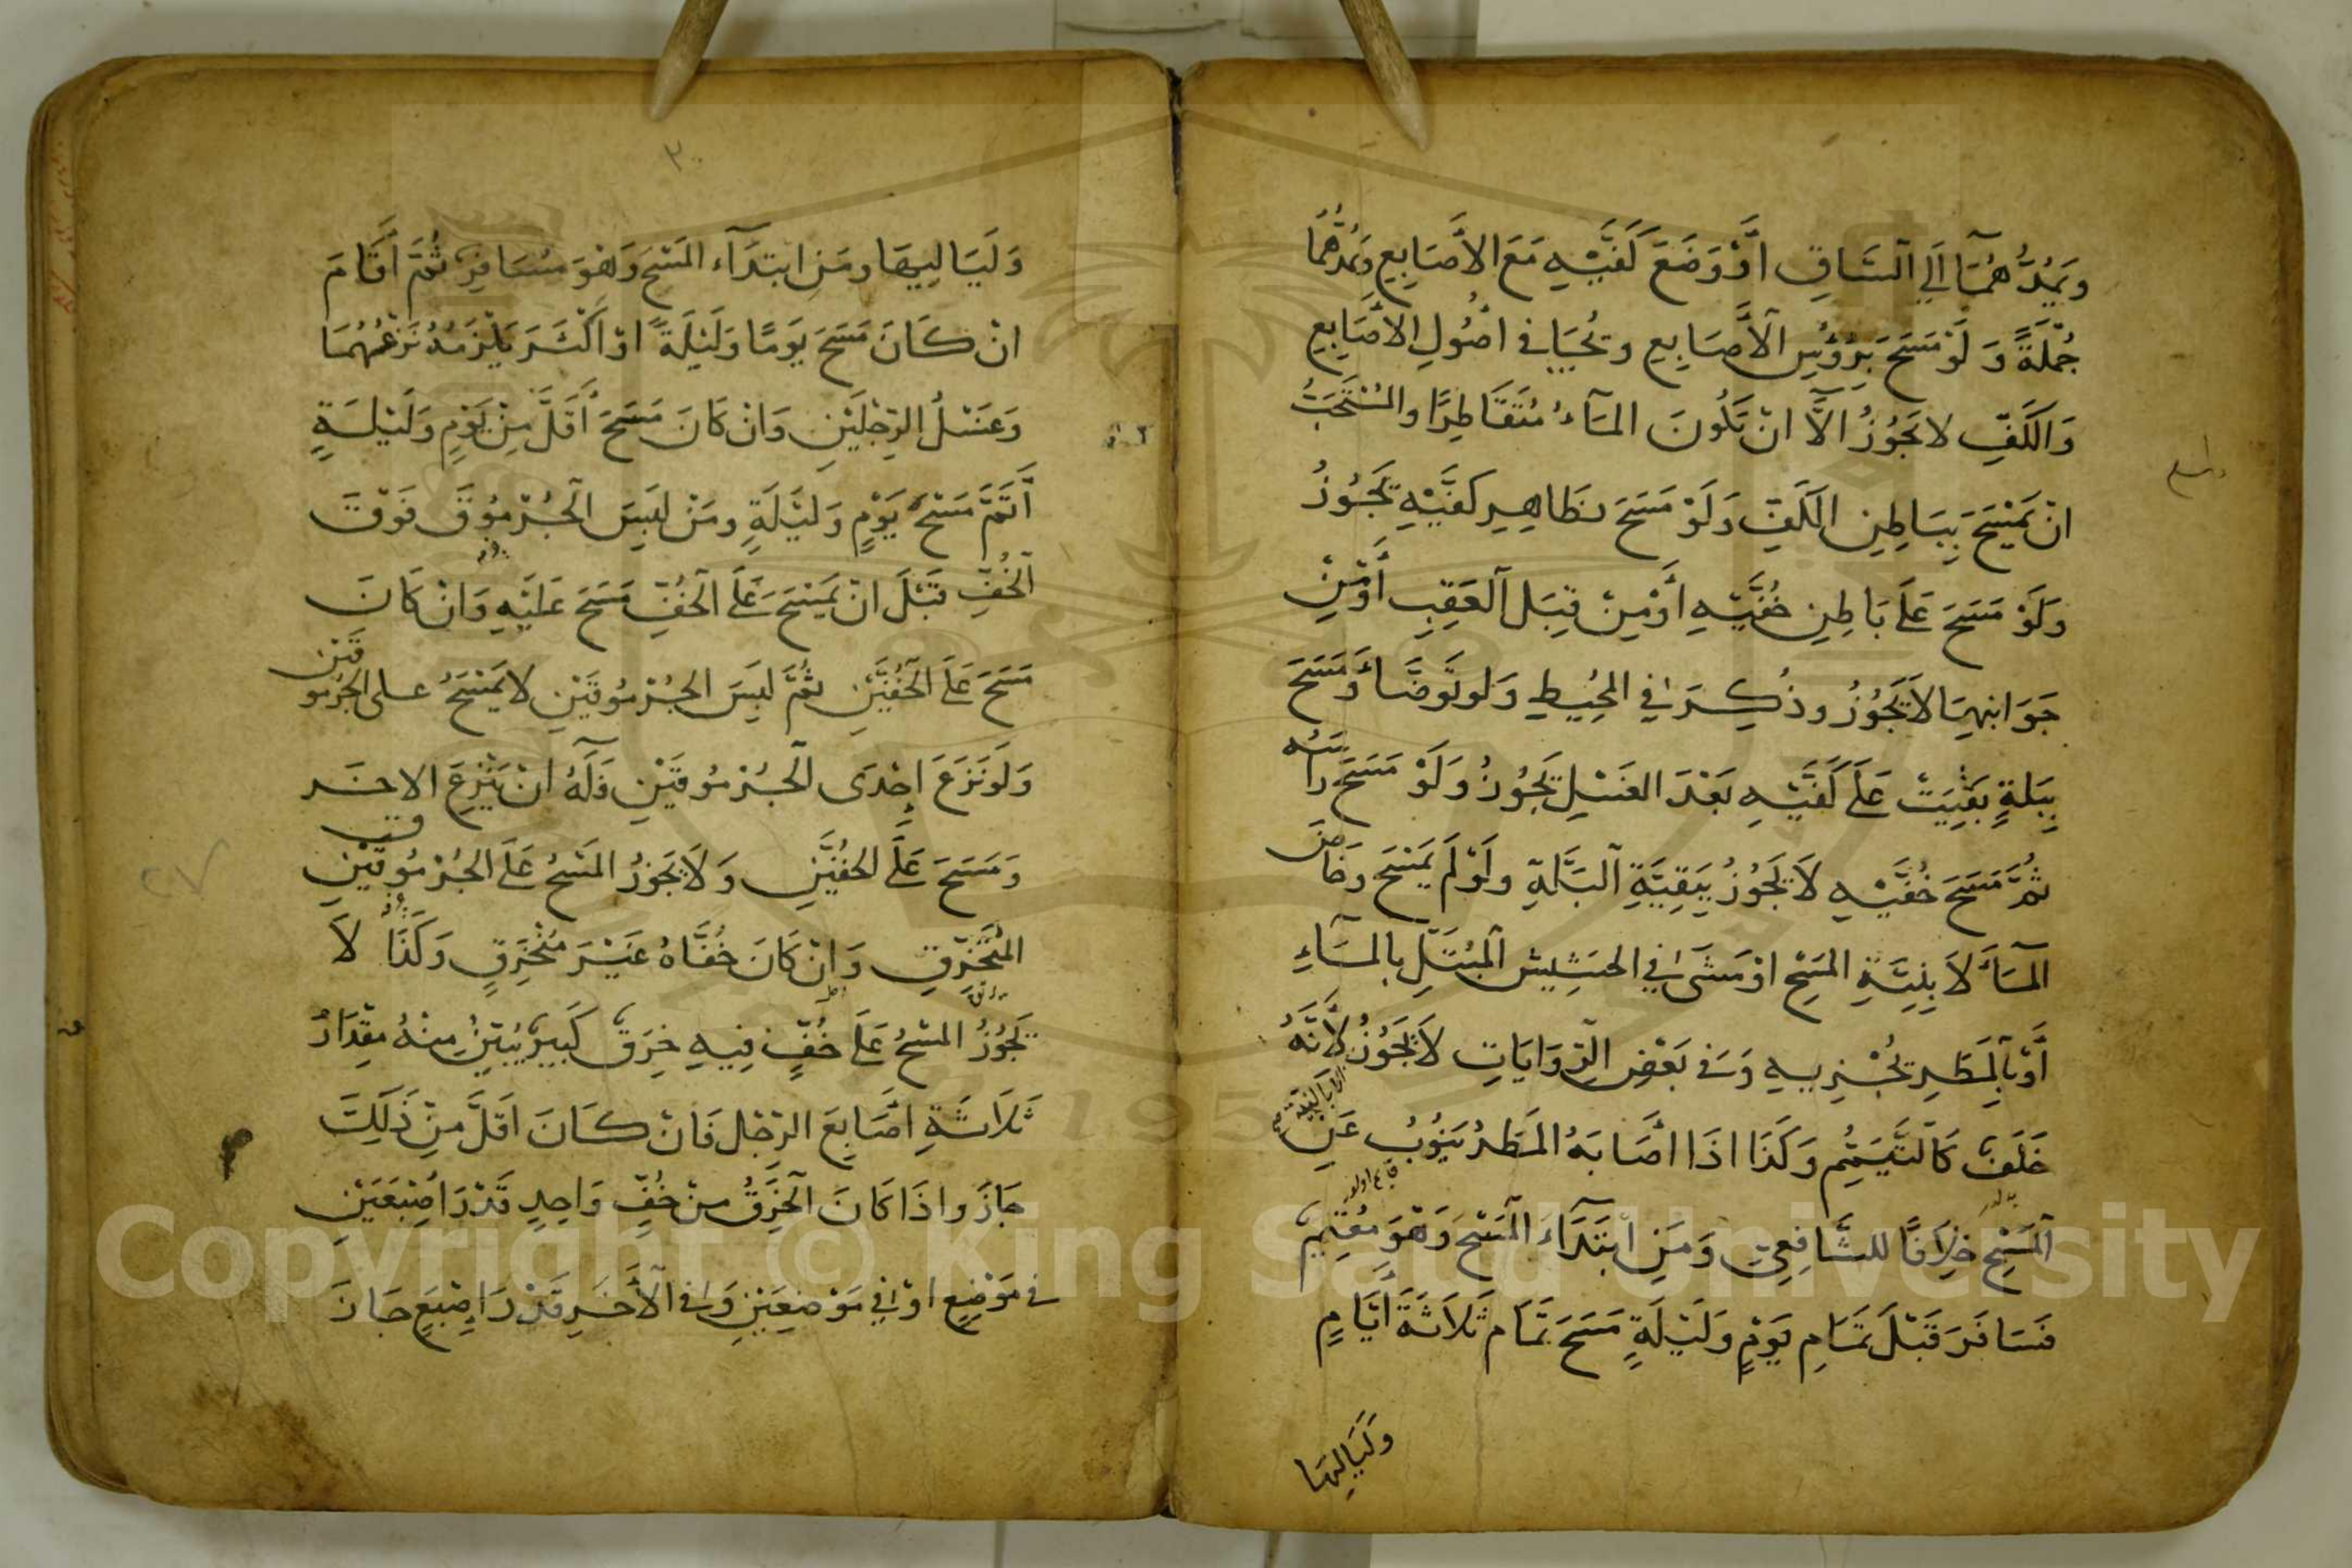 وَيَمُدُّهُمَا اِلَى السَّاقِ اَوْ وَضَعَ كَفَّيْهِ مَعَ الاَصَابِعِ وَيَمُدُّهُمَا
جُمْلَةً وَ لَوْ مَسَحَ بِرُؤُسِ الاَصَابِعِ وَيُجَافِى اُصُولِ الاَصَابِعِ
وَالكَفِّ لا يَجُوزُ اِلاَّ اَنْ يَكُونَ المَاءُ مُتَقَاطِرًا والمُسْتَحَبُّ
اَنْ يَمْسَحَ بِبَاطِنِ الكَفِّ وَلَوْ مَسَحَ بظَاهِرِ كَفَّيْهِ يَجُوزُ
وَلَوْ مَسَحَ عَلَى بَاطِنِ خُفَّيْهِ أَوْ مِنْ قِبَلِ العَقِبِ أَوْ مِنْ
جَوَانِبِهَا لاَ يَجُوزُ وذُكِرَ فِي المُحِيطِ وَلَو تَوَضَّأَ وَمَسَحَ
بِبَلَةٍ بَقِيَتْ عَلَى كَفَّيْهِ بَعْدَ الغَسْلِ يَجُوزُ وَلَوْ مَسَحَ رَاسَهُ
ثُمَّ مَسَحَ خُفَّيْهِ لاَ يَجُوزُ بِبَقِيَّةِ البَلَّةِ ولَوْ لَمْ يَمْسَحْ وخَاضَ
المَاءَ لاَ بِنِيَّةِ المَسْحِ اَوْ مَشَى فِي الحَشِيشِ المُبْتَلِّ بِالمَاءِ
أَوْ بِالمَطَرِ يُجْزِيهِ وَفِى بَعْضِ الرِّوَايَاتِ لاَ يَجُوزُ لِاَنَّهُ
خَلَفٌ كَالتَّيَمُّمِ وَكَذَا اِذَا اَصَابَهُ المَطَرُ يَنُوبُ عَنِ
المَسْحِ خِلاَفًا للشَّافِعِىِّ وَمَنِ ابْتَدَاءَ المَسْحَ وَهُوَ مُقِيمٌ
فسَافَرَ قَبْلَ تَمَامِ يَوْمٍ وَلَيْلَةٍ مَسَحَ تَمَام ثَلاَثَةَ أَيَّامٍ
وَلَيَالِيهَا
٣٠
وَلَيَالِيهَا ومَنِ ابتَدَاءَ المَسْحَ وَهُوَ مُسَافِرٌ ثُمَّ أَقَامَ
اِنْ كَانَ مَسَحَ يَوْمًا وَلَيْلَةً اَوْ اَكْثَرَ يَلْزَمُهُ نَزْعُهُمَا
وَغَسْلُ الرِّجْلَيْنِ وَاِنْ كَانَ مَسَحَ أَقَلَّ مِنْ يَوْمٍ وَلَيْلَةٍ
أَتَمَّ مَسْحَ يَوْمٍ وَلَيْلَةٍ ومَنْ لَبِسَ الجُرْمُوقَ فَوْقَ
الخُفِّ قَبْلَ اَنْ يَمْسَحَ عَلَى الخُفِّ مَسَحَ عَلَيْهِ وَاِنْ كَانَ
مَسَحَ عَلَى الخُفَّيْنِ ثُمَّ لَبِسَ الجُرْمُوقَيْنِ لا يَمْسَحُ على الجُرْمُوقَيْنِ
وَلَو نَزَعَ اِحْدَى الجُرْمُوقَيْنِ فَلَهُ اَنْ يَنْزِعَ الاخَر
وَمَسَحَ عَلَى الخُفَّيْنِ وَلاَ يَجُوزُ المَسْحُ عَلَى الجُرْمُوقَيْنِ
المُنْخَرِقِ وَاِنْ كَانَ خُفَّاهُ غَيْرَ مُنْخَرِقٍ وَكَذَا لاَ
يَجُوزُ المَسْحُ عَلَى خُفٍّ فِيهِ خِرَقٌ كَبِيرٌ يُبَيِّنُ مِنْهُ مِقْدَارُ
ثَلاَثَةِ اَصَابِعَ الرِّجْلِ فَاِنْ كَانَ اَقَلَّ مِنْ ذَلِكَ
جَازَ واِذَا كَانَ الخِرَقُ من خُفٍّ وَاحِدٍ قَدْرَ اِصْبَعَيْنِ
فى مَوْضِعٍ اَوْ فِي مَوْضِعَيْنِ وَفِى الآخَرِ قَدْرَ اِصْبَعٍ جَازَ
٢٧
Copyright © King Saud University
195